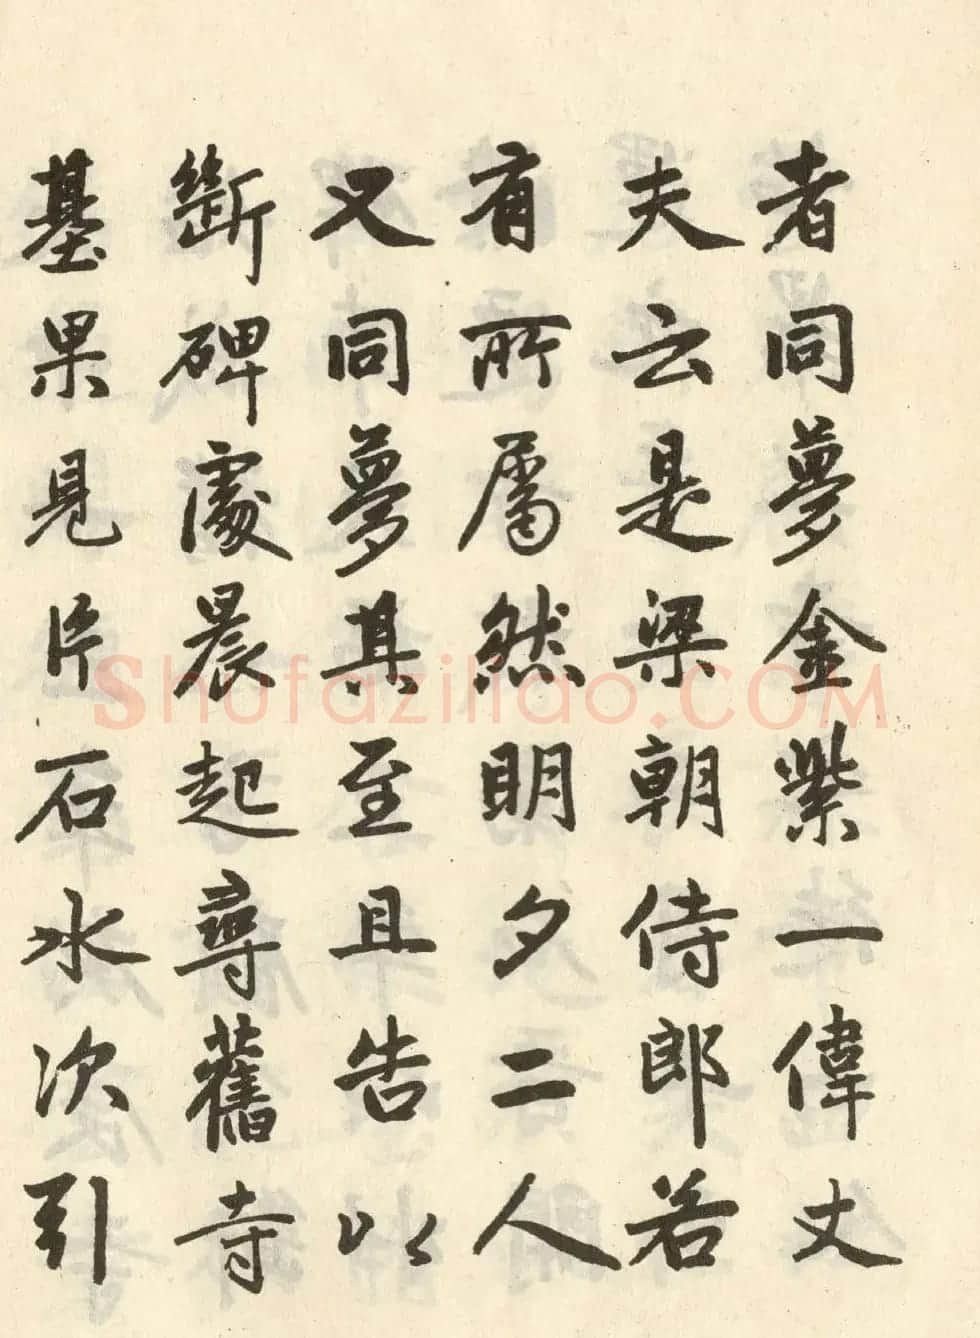 者同夢金紫一偉丈
夫云是梁朝侍郎若
有所屬然明夕二人
又同夢其至且告以
斷碑處晨起尋舊寺
基果見片石水次引
Shufaziliao.COM